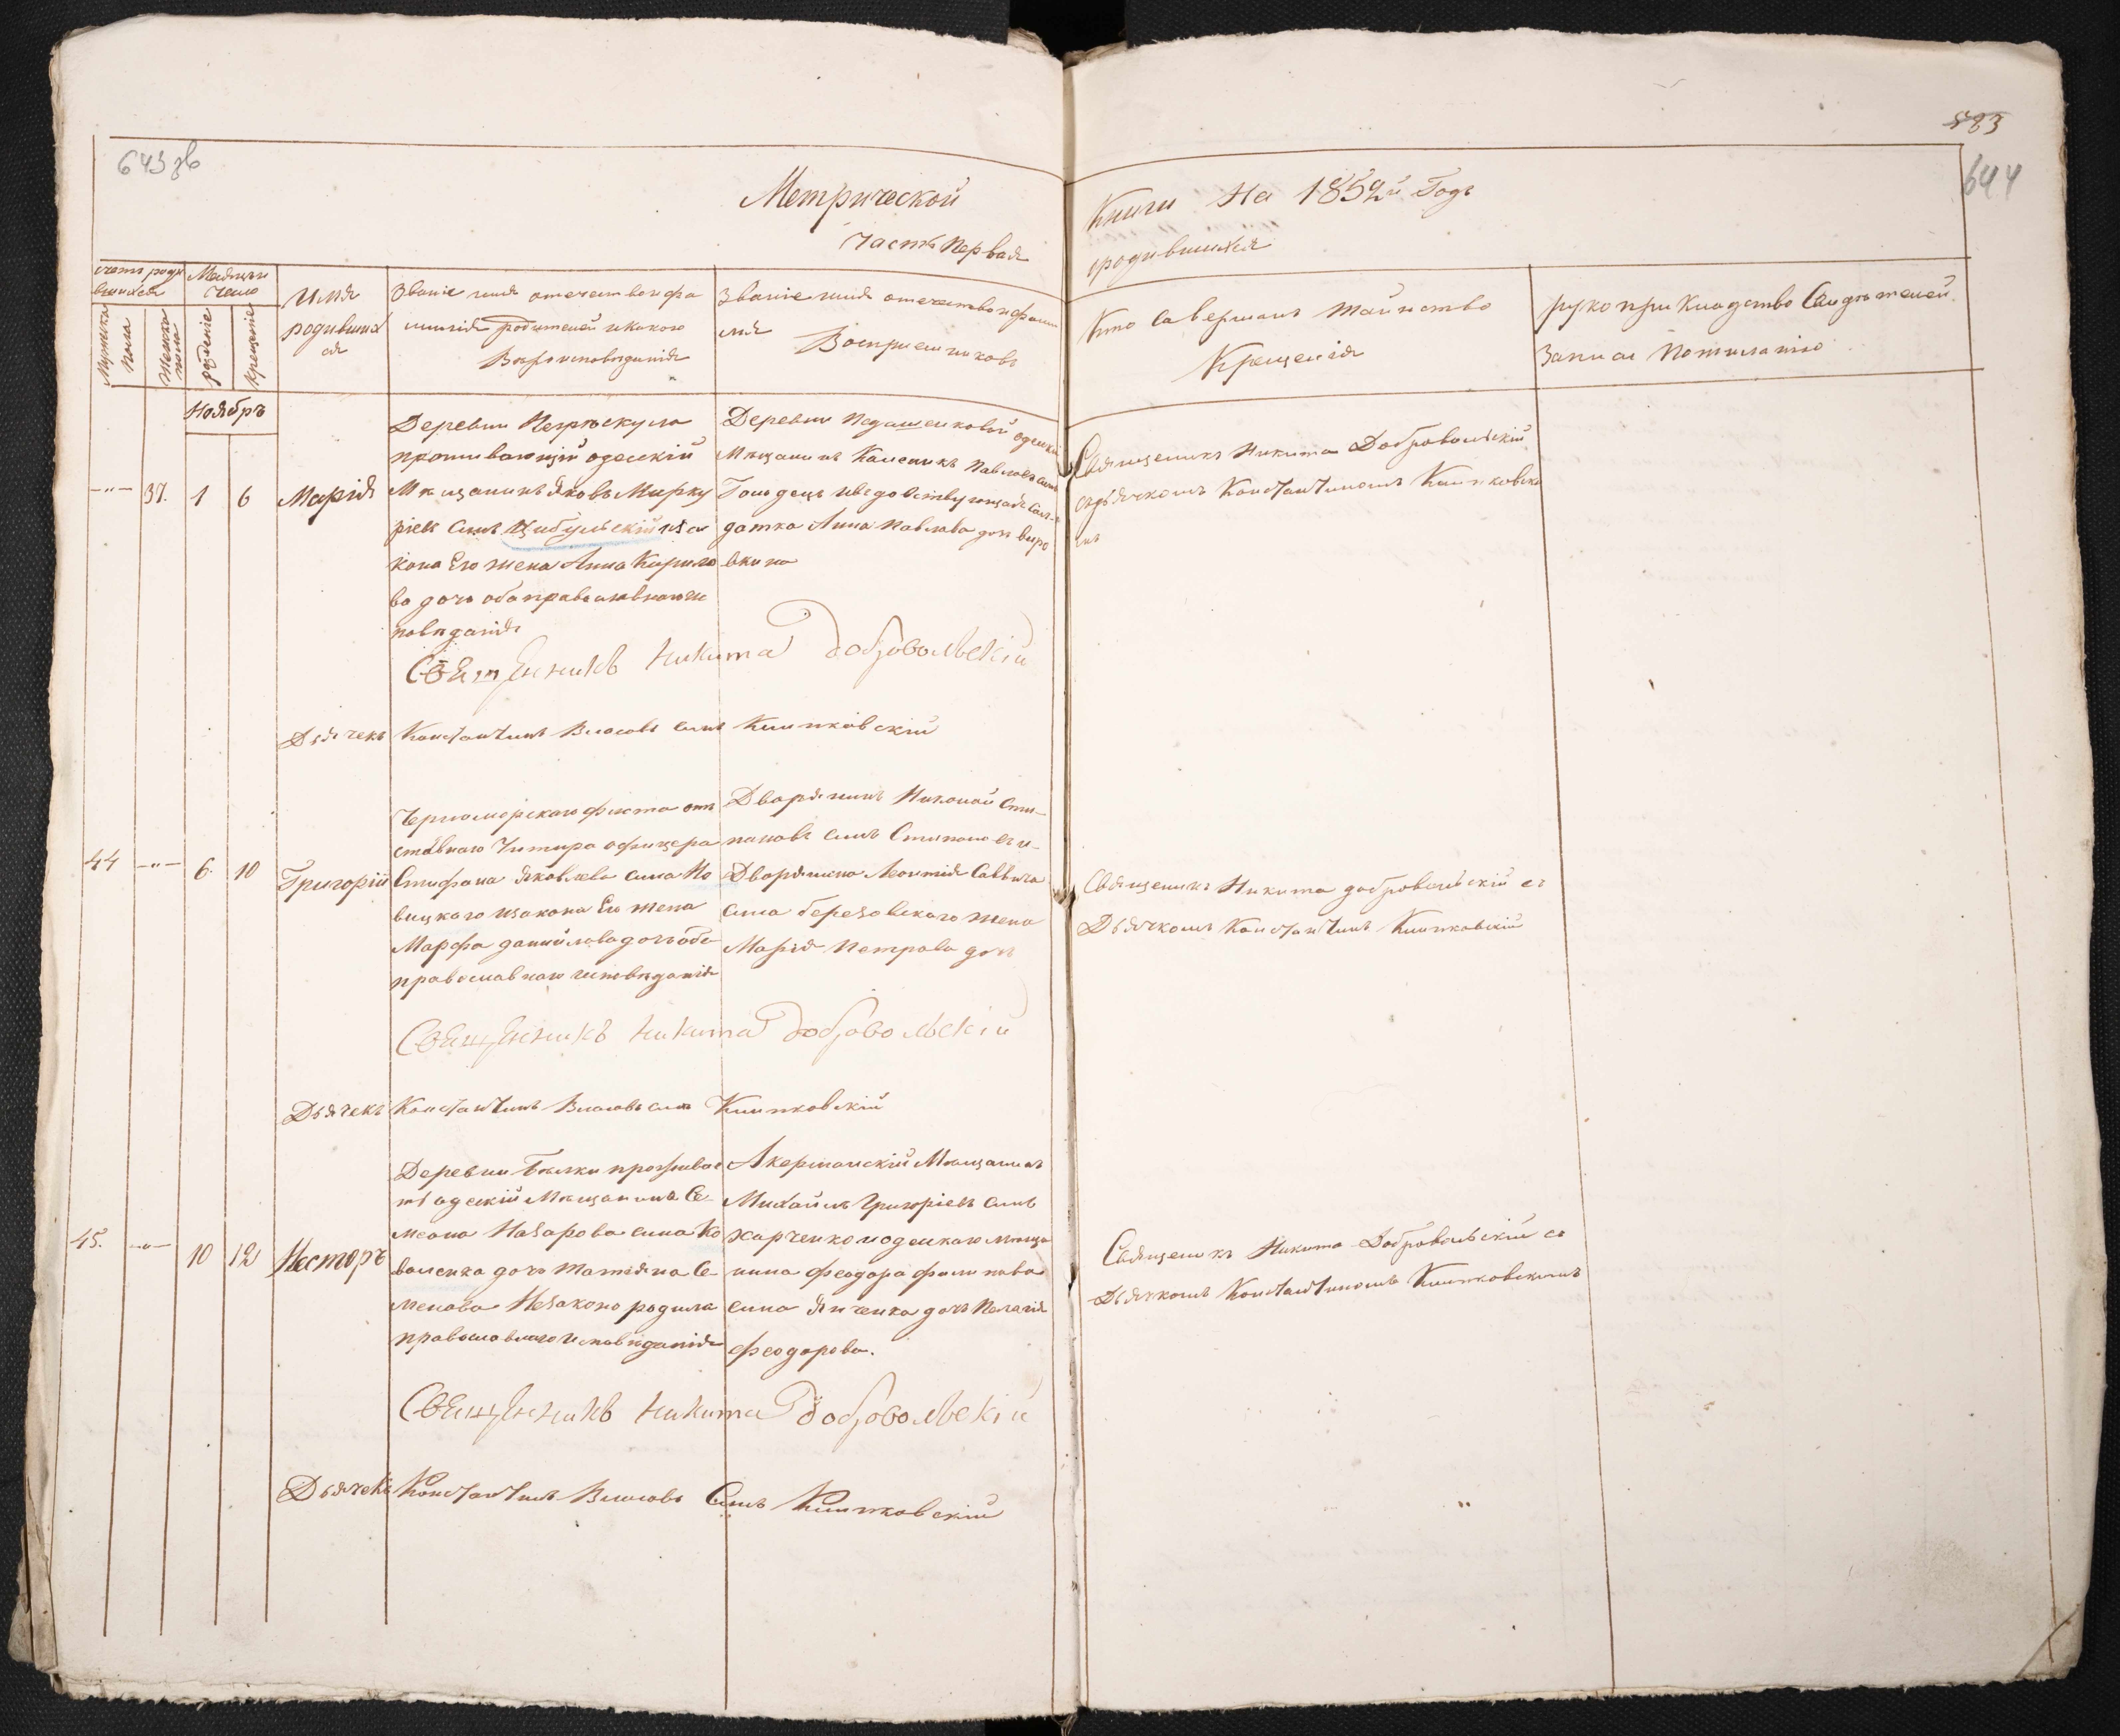 643 зв
583
644
Метрической
Книги На 1852й Годъ
часть Первая
родившихся
счетъ роди
вшихся
Мужеска
пола
Женска
пола
Месяцъ и
число
рождение
крещение
Имя
родивших
ся
Званіе имя отечество и фа
милія родителей и какого
Вероисповеданія
Званіе имя отечество и фами
лія
Восприемниковъ
Кто Савершалъ таинство
Крещенія
рукоприкладство Свидетелей
Записи По желанію
Ноябръ
-"- 37. 1 6 Марія
Деревни
проживающій одесскій
Мещанинъ Яковъ Мирку
ріевъ Сынъ Цибульскій иза
кона Его жена Анна Кирило
ва дочь оба православного ис
поведанія
Деревни одескій
Мещанинъ Каленикъ Павловъ сынъ
Сал-
датка Анна Павлова дочь
Священикъ Никита Добровольскій
съ дьячкомъ Константиномъ Климковски
мъ
Священникъ Никита Добровольскій
Дьячекъ Константинъ Власовъ сынъ Климковскій
44 -"- 6. 10 Григорій
Черноморского флота отъ
ставного офицера
Стефана Яковлева сына Но
вицкого изакона Его жена
Марфа данийлова дочь оба
православного исповеданія
Дворянинъ Николай Сте-
пановъ сынъ
Дворянина Леонтія Саввича
сына березовского жена
Марія Петрова дочь
Священикъ Никита добровольскій съ
Дьячкомъ Константинъ Климковскій
Священникъ Никита Добровольскій
Дьячекъ Константинъ Власовъ сынъ Климковскій
45. -"- 10 12 Несторъ
Деревни Белки прожива
тъ одескій Мещанинъ Се-
меона Назарова сына Ко
валенка дочь Татіяна Се-
менова Незаконо родила
православного исповеданія
Акерманскій Мещанинъ
Михаилъ Григоріевъ сынъ
Харченко и одеского меща
нина Феодора филипова
сына Яценка дочь Пелагія
Феодорова.
Священикъ Никита Добровольскій съ
Дьячкомъ Константиномъ Климковскимъ
Священникъ Никита Добровольскій
Дьячекъ Константинъ Власовъ Сынъ Климковскій